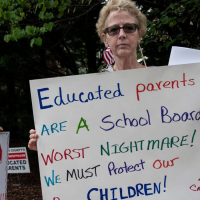 Educated parents
ARE A School Board
WORST NIGHTMARE!
WE MUST Protect OUR
CHILDREN!
PARENTS